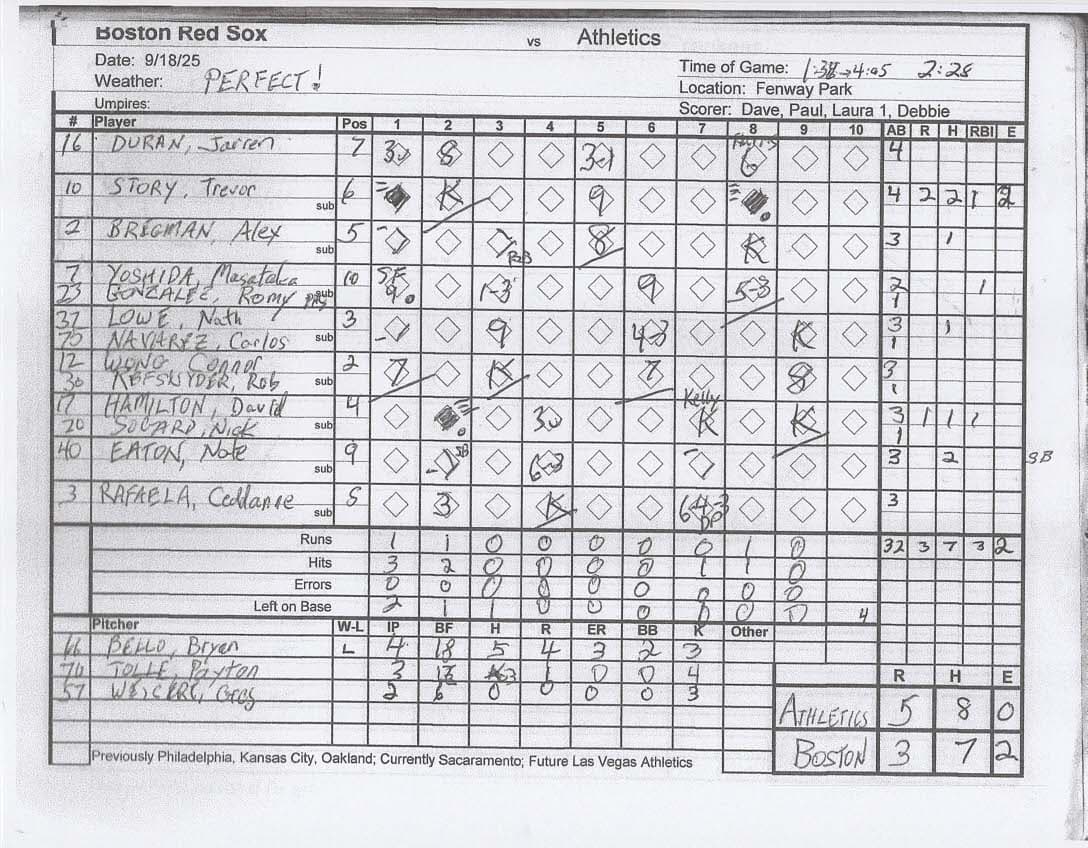 Boston Red Sox vs Athletics
Date: 9/18/25
Weather: PERFECT!
Time of Game: 4:05 2:28
Location: Fenway Park
Umpires:
Scorer: Dave, Paul, Laura 1, Debbie
# Player Pos 1 2 3 4 5 6 7 8 9 10 AB R H RBI E
16 DURAN, Jarren 7 8 6 4
10 STORY, Trevor sub 6 K 9 4 2 2 1 2
2 BREGMAN, Alex sub 5 8 K 3 1
7 YOSHIDA, Masataka 10 SF 9 1-3 9 5-3 2 1
23 sub 1
37 LOWE, Nath 3 9 4-3 K 3 1
70 Carlos sub 1
12 WONG Connor 2 7 K 7 8 3
30 REFSNYDER, Rob sub 1
17 HAMILTON, David 4 Kelly K K 3 1 1 1
20 SOGARD, Nick sub 1
40 EATON, Nate sub 9 SB 6-3 3 2 SB
3 RAFAELA, Ceddanne sub 3 K 6-4-3 DP 3
Runs 1 1 0 0 0 0 0 1 0 32 3 7 3 2
Hits 3 2 0 0 0 0 1 1 0
Errors 0 0 0 0 0 0 0 0 0
Left on Base 2 1 1 0 0 0 0 0 0 4
Pitcher W-L IP BF H R ER BB K Other
66 BELLO, Bryan L 4 18 5 4 3 2 3
70 TOLLE, Payton 3 3 1 0 0 4
57 Greg 2 6 0 0 0 0 3
R H E
ATHLETICS 5 8 0
BOSTON 3 7 2
Previously Philadelphia, Kansas City, Oakland; Currently Sacaramento; Future Las Vegas Athletics